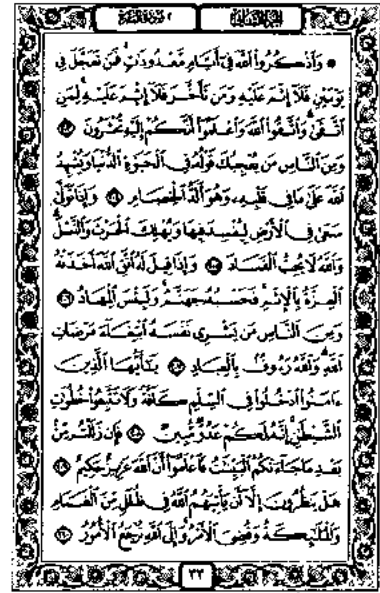 الجزء الثاني
سورة البقرة ٢
۞ وَاذْكُرُوا اللَّهَ فِي أَيَّامٍ مَعْدُودَاتٍ فَمَنْ تَعَجَّلَ فِي
يَوْمَيْنِ فَلَا إِثْمَ عَلَيْهِ وَمَنْ تَأَخَّرَ فَلَا إِثْمَ عَلَيْهِ لِمَنِ
اتَّقَى وَاتَّقُوا اللَّهَ وَاعْلَمُوا أَنَّكُمْ إِلَيْهِ تُحْشَرُونَ ٢٠٣
وَمِنَ النَّاسِ مَنْ يُعْجِبُكَ قَوْلُهُ فِي الْحَيَوٰةِ الدُّنْيَا وَيُشْهِدُ
اللَّهَ عَلَى مَا فِي قَلْبِهِ وَهُوَ أَلَدُّ الْخِصَامِ ٢٠٤ وَإِذَا تَوَلَّى
سَعَى فِي الْأَرْضِ لِيُفْسِدَ فِيهَا وَيُهْلِكَ الْحَرْثَ وَالنَّسْلَ
وَاللَّهُ لَا يُحِبُّ الْفَسَادَ ٢٠٥ وَإِذَا قِيلَ لَهُ اتَّقِ اللَّهَ أَخَذَتْهُ
الْعِزَّةُ بِالْإِثْمِ فَحَسْبُهُ جَهَنَّمُ وَلَبِئْسَ الْمِهَادُ ٢٠٦
وَمِنَ النَّاسِ مَنْ يَشْرِي نَفْسَهُ ابْتِغَاءَ مَرْضَاتِ
اللَّهِ وَاللَّهُ رَءُوفٌ بِالْعِبَادِ ٢٠٧ يَٰأَيُّهَا الَّذِينَ
ءَامَنُوا ادْخُلُوا فِي السِّلْمِ كَافَّةً وَلَا تَتَّبِعُوا خُطُوَٰتِ
الشَّيْطَٰنِ إِنَّهُ لَكُمْ عَدُوٌّ مُبِينٌ ٢٠٨ فَإِنْ زَلَلْتُمْ مِنْ
بَعْدِ مَا جَاءَتْكُمُ الْبَيِّنَٰتُ فَاعْلَمُوا أَنَّ اللَّهَ عَزِيزٌ حَكِيمٌ ٢٠٩
هَلْ يَنْظُرُونَ إِلَّا أَنْ يَأْتِيَهُمُ اللَّهُ فِي ظُلَلٍ مِنَ الْغَمَامِ
وَالْمَلَٰئِكَةُ وَقُضِيَ الْأَمْرُ وَإِلَى اللَّهِ تُرْجَعُ الْأُمُورُ ٢١٠
٣٢